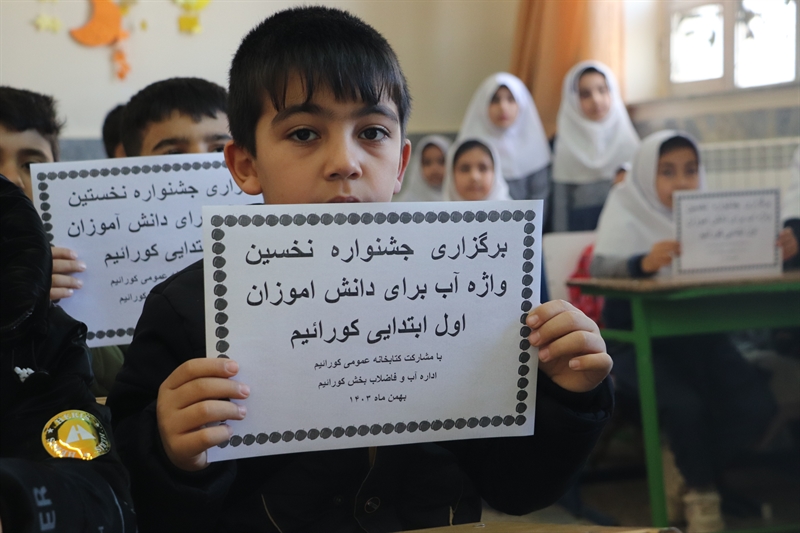 برگزاری جشنواره نخسین
واژه آب برای دانش اموزان
اول ابتدایی کورائیم
با مشارکت کتابخانه عمومی کورائیم
اداره آب و فاضلاب بخش کورائیم
بهمن ماه ۱۴۰۳
برگزاری جشنواره نخستین
واژه آب برای دانش آموزان
ابتدایی کورائیم
کتابخانه عمومی کورائیم
بخش کورائیم